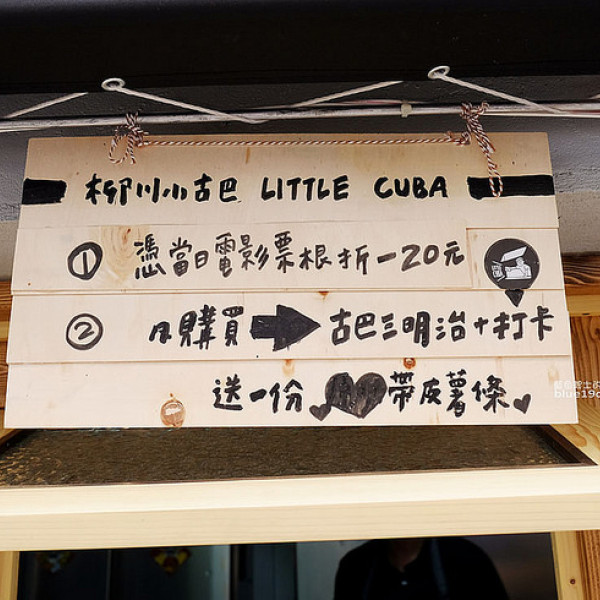 柳川小古巴 LITTLE CUBA
① 憑當日電影票根折-20元
② 凡購買➡古巴三明治+打卡
送一份 帶皮薯條